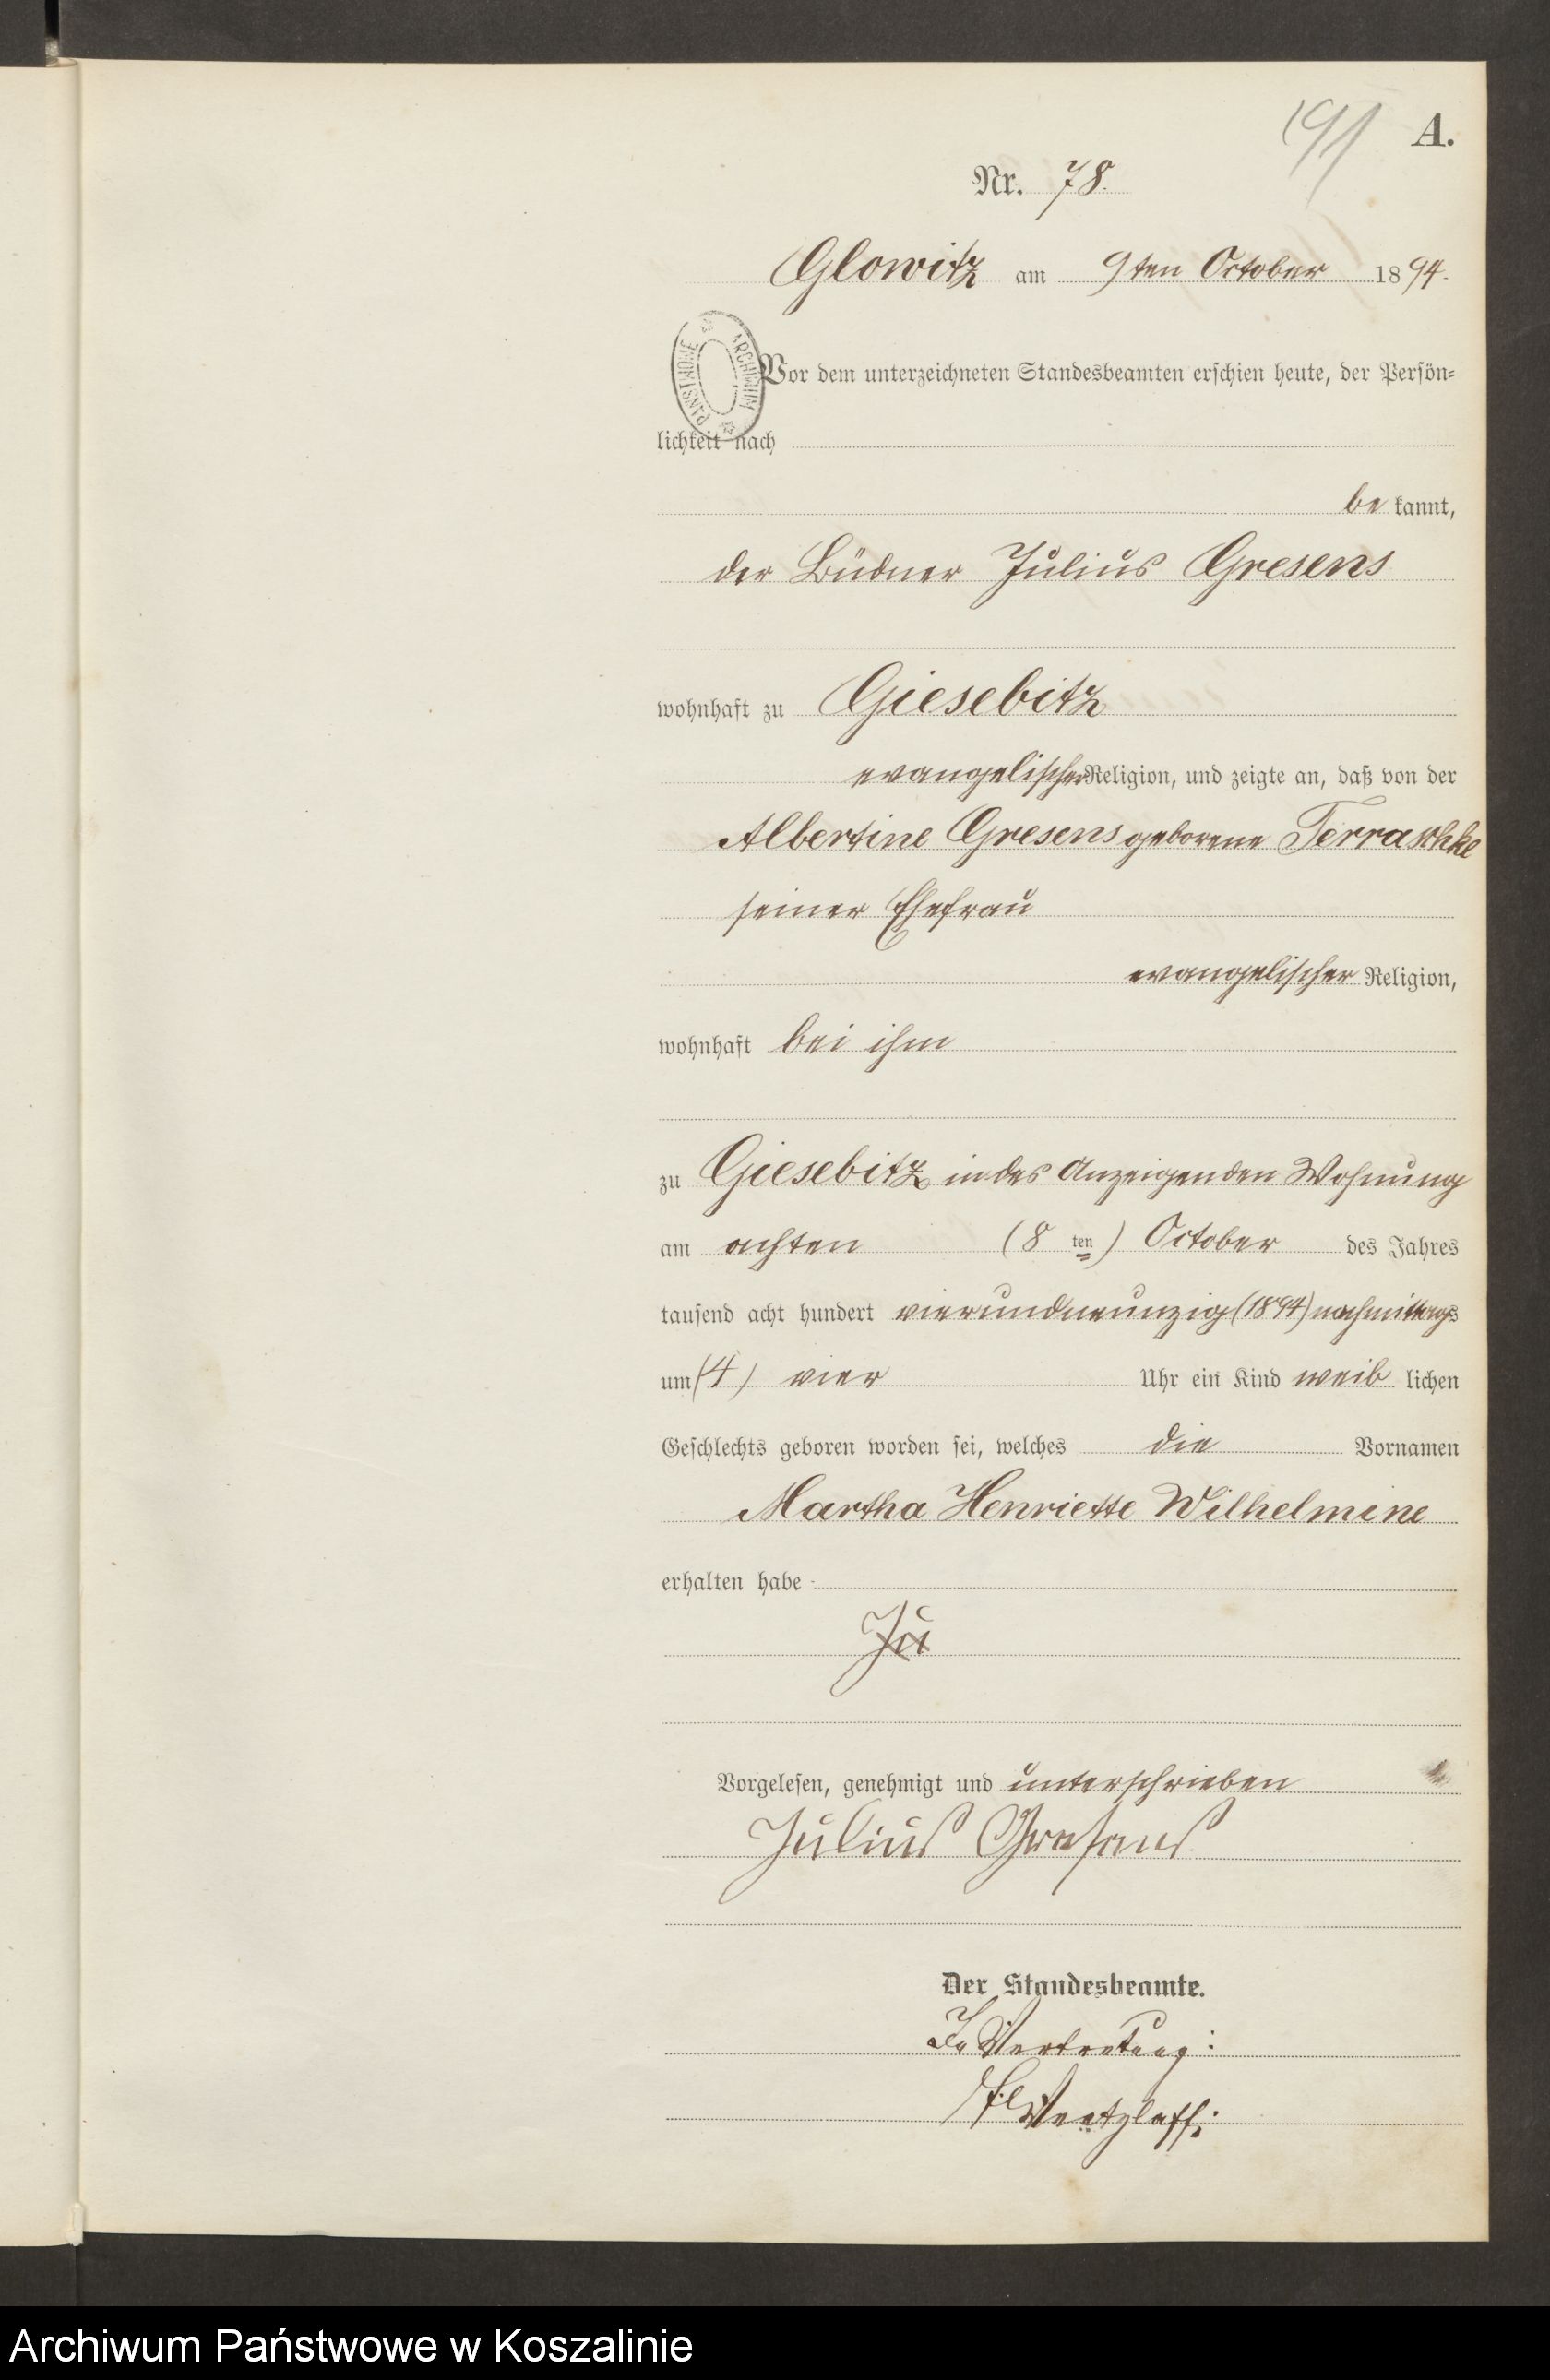 191
A.
Nr. 78.
Glowitz am 9ten October 1894.
ARCHIWUM PAŃSTWOWE
Vor dem unterzeichneten Standesbeamten erschien heute, der Persön-
lichkeit nach
be kannt,
der Büdner Julius Gresens
wohnhaft zu Giesebitz
evangelischer Religion, und zeigte an, daß von der
Albertine Gresens geborene Terraschke
seiner Ehefrau
evangelischer Religion,
wohnhaft bei ihm
zu Giesebitz in des Anzeigenden Wohnung
am achten (8 ten) October des Jahres
tausend acht hundert vierundneunzig (1894) nachmittags
um (4) vier Uhr ein Kind weib lichen
Geschlechts geboren worden sei, welches die Vornamen
Martha Henriette Wilhelmine
erhalten habe
Ju
Vorgelesen, genehmigt und unterschrieben
Julius Gresens.
Der Standesbeamte.
In Vertretung:
Archiwum Państwowe w Koszalinie